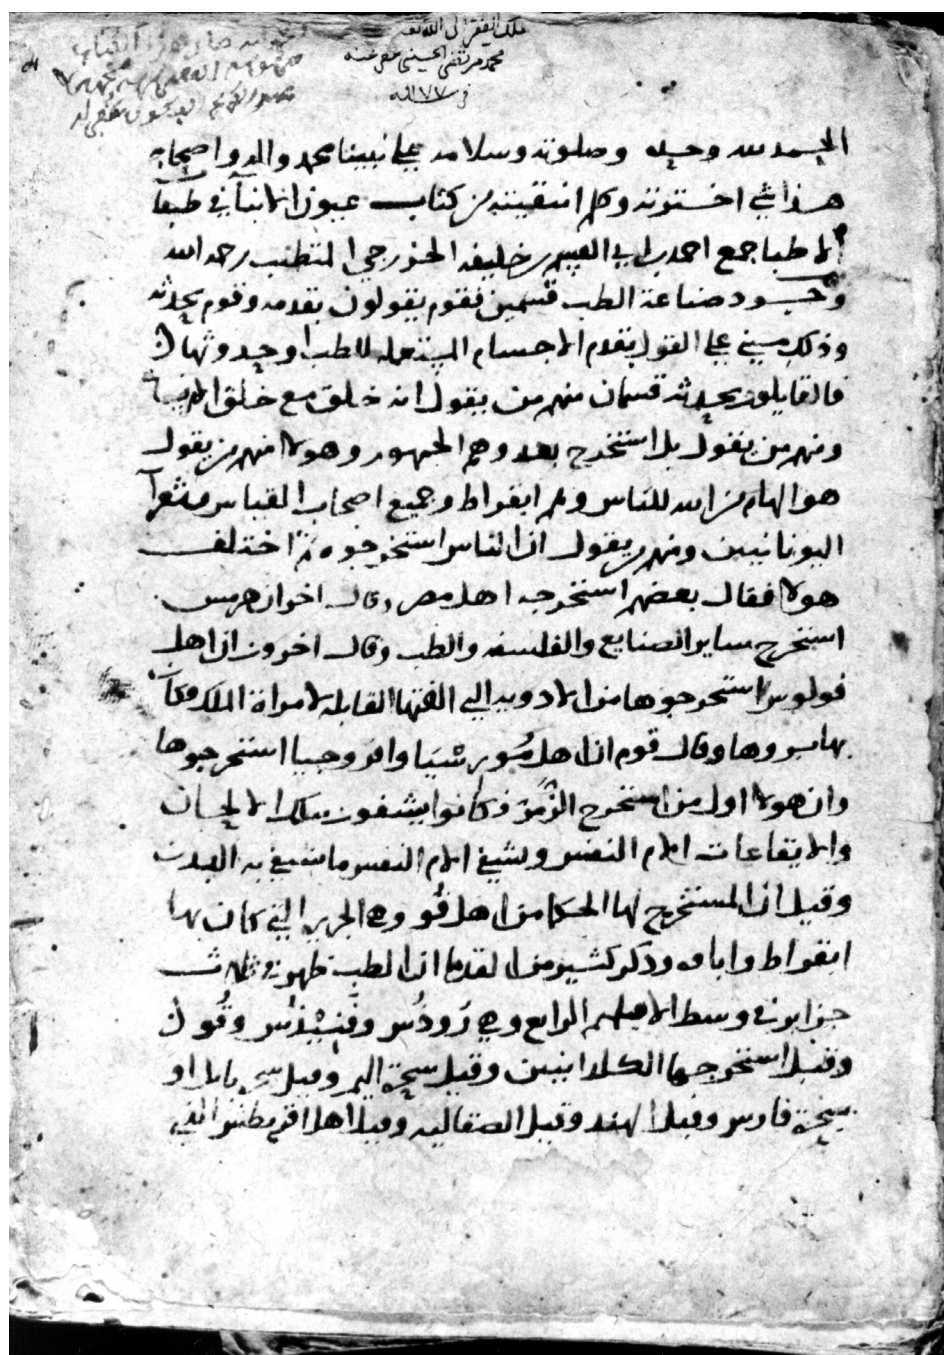 ملك الفقير الى الله تعالى
محمد مرتضى الحسيني عفي عنه
في سنة ١١٧٧
الحمد لله وحده وصلوته وسلامه على نبينا محمد واله واصحابه
هذا شي اخترته وكلم انتقيته من كتاب عيون الانبآ في طبقا
الاطبا جمع احمد بن ابي القسم بن خليفه الخزرجي المتطبب رحمه الله
وجود صناعة الطب قسمين فقوم يقولون بقدمه وقوم بحدثه
وذلك مبني على القول بقدم الاجسام المستعمله للطب وحدوثها
فالقايلون بحدثه قسمان منهم من يقول انه خلق مع خلق الانسان
ومنهم من يقول بل استخرج بعد وهم الجمهور وهولا منهم من يقول
هو الهام من الله للناس وهم ابقراط وجميع اصحاب القياس وشعرآ
اليونانيين ومنهم من يقول ان الناس استخرجوه ثم اختلف
هولا فقال بعضهم استخرجه اهل مصر وقال اخرون هرمس
استخرج ساير الصنايع والفلسفه والطب وقال اخرون ان اهل
قولوس استخرجوها من الادويه التي الفتها القابله لامراة الملك وكان
بها بروها وقال قوم ان اهل موسيا وافروجيا استخرجوها
وان هولا اول من استخرج الزمر فكانوا يشفون بتلك الالحان
والايقاعات الام النفس ويشفي الام النفس ما يشفي به البدن
وقيل ان المستخرج لها الحكما من اهل قو وهي الجزيره التي كان بها
ابقراط واباوه وذكر كثير من القدما ان الطب ظهر في ثلاث
جزاير في وسط الاقليم الرابع وهي رودس وقنيدس وقو
وقيل استخرجها الكلدانيين وقيل سحرة اليمن وقيل سحرة بابل او
سحرة فارس وقيل الهند وقيل الصقالبه وقيل اهل اقريطش الذين